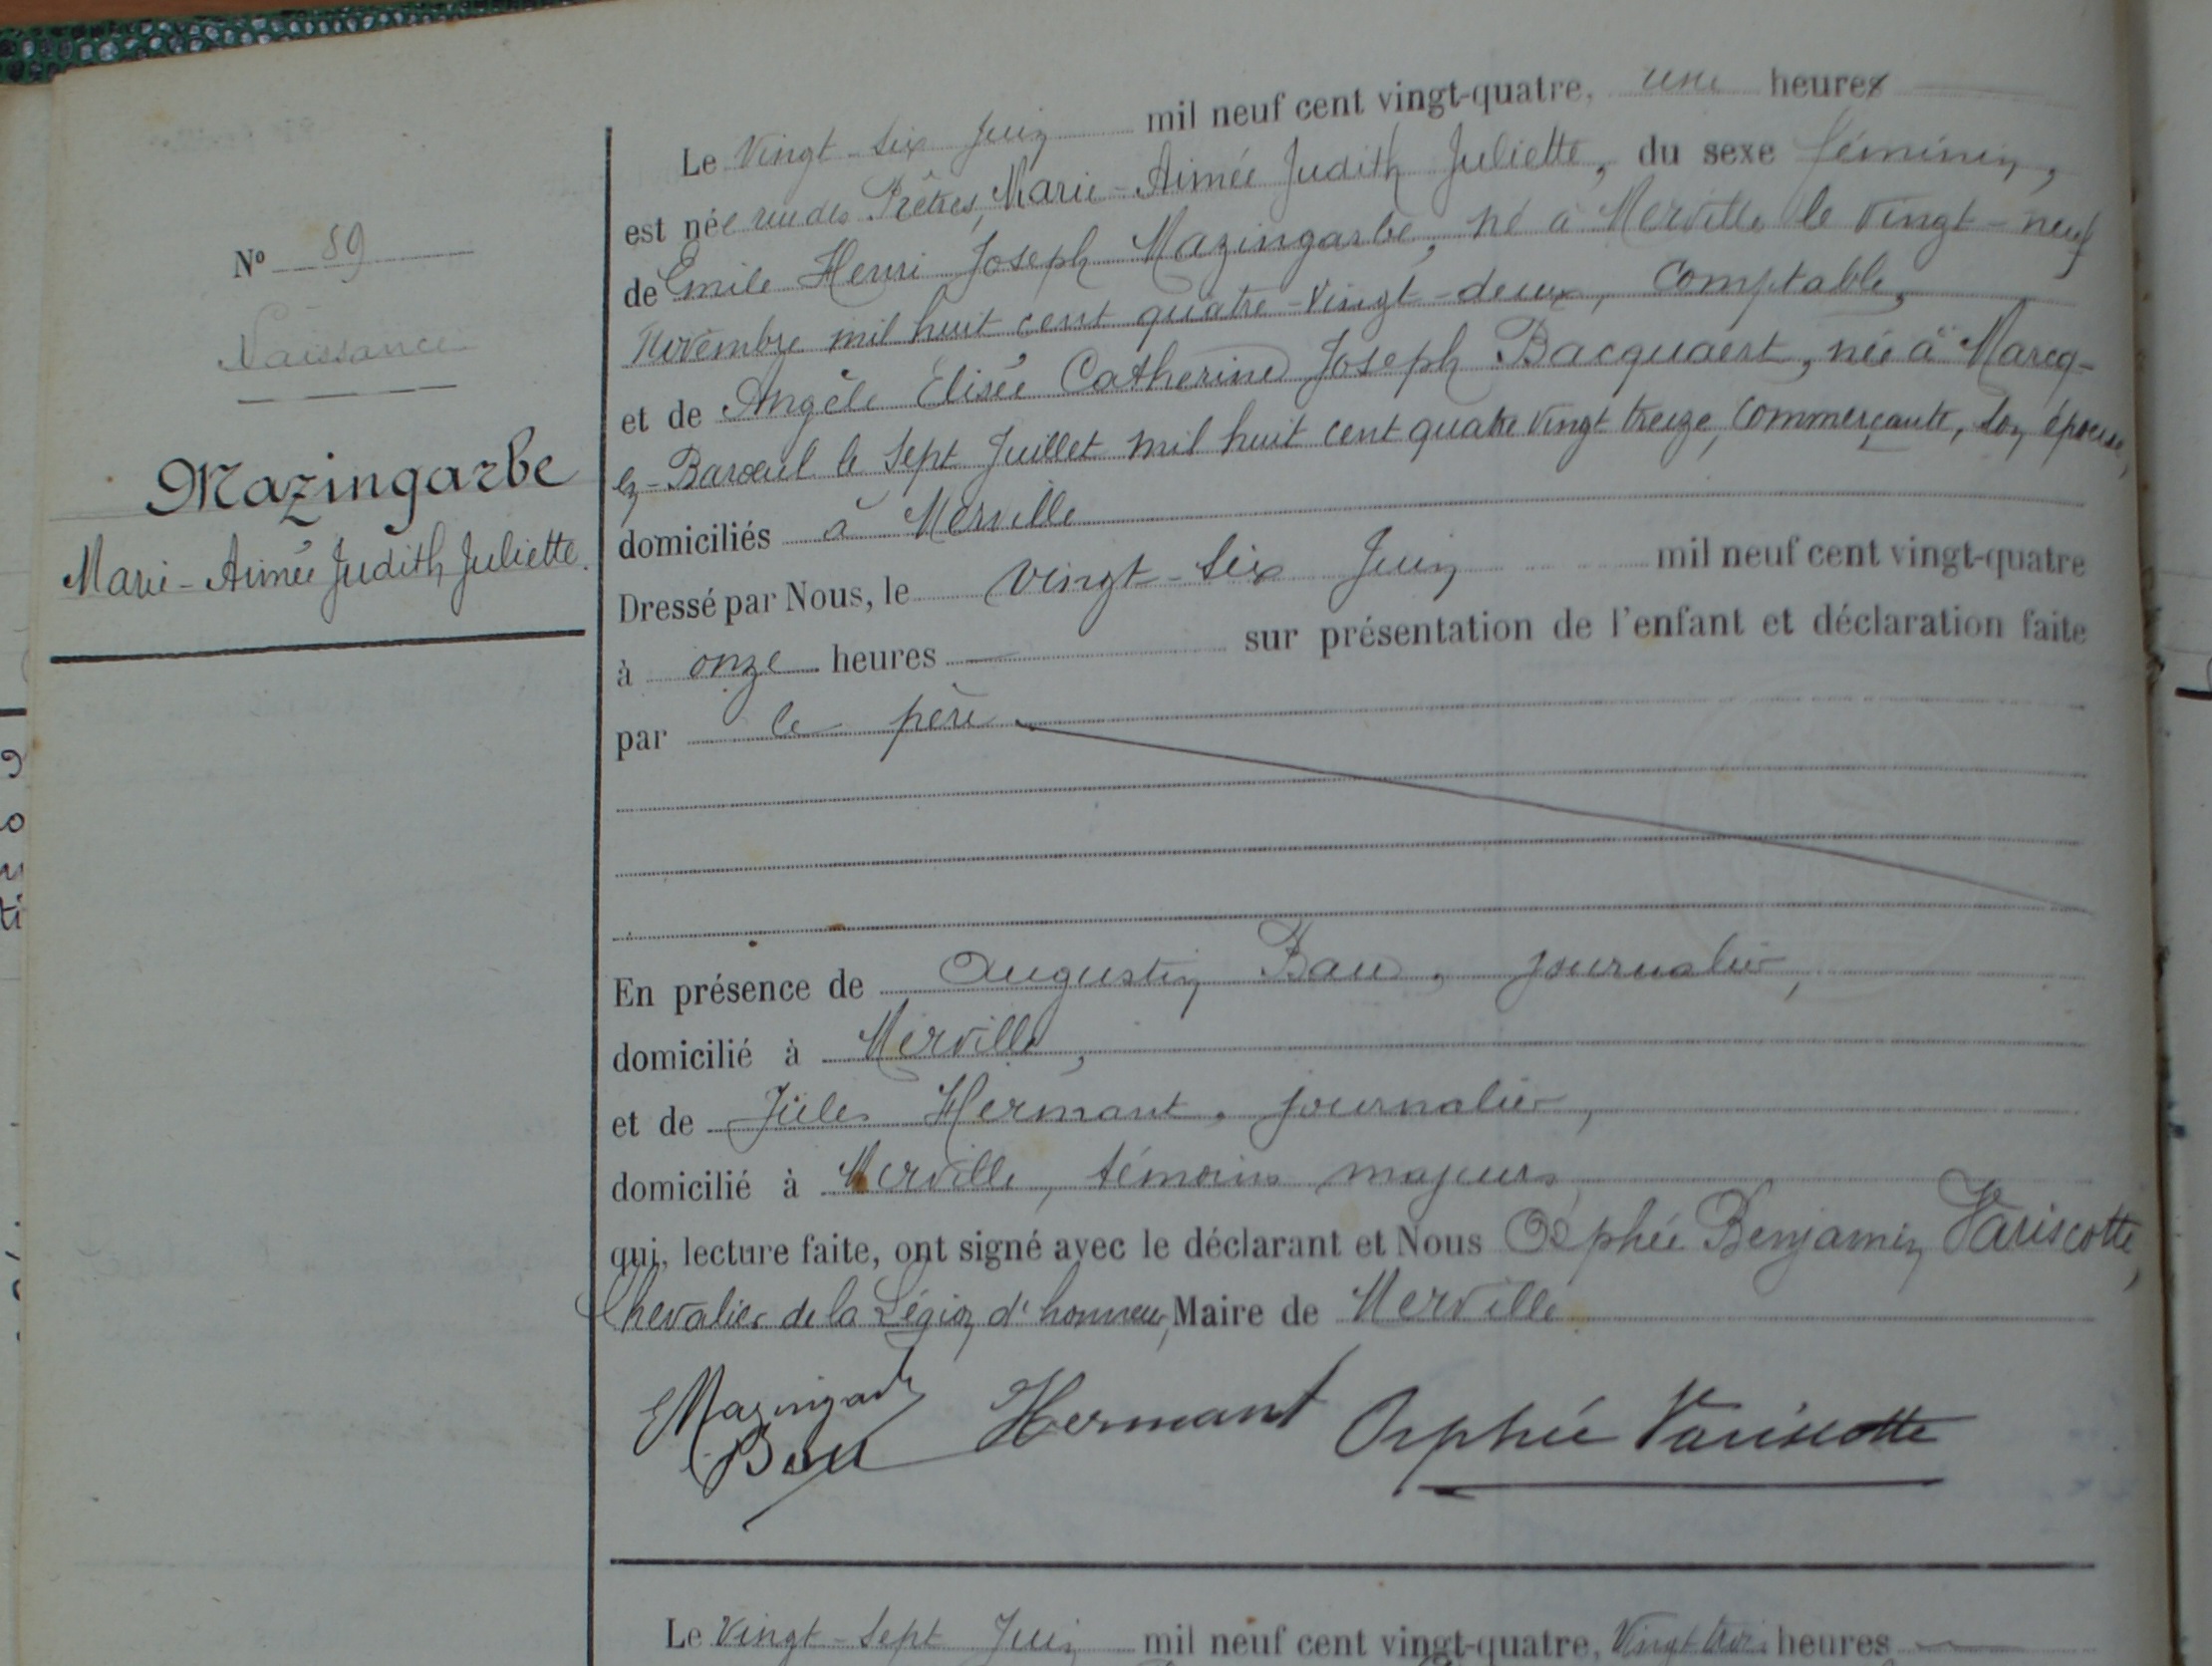 Nº 89
Naissance
Mazingarbe
Marie-Aimée Judith Juliette.
Le Vingt-six Juin mil neuf cent vingt-quatre, une heures
est née rue des Prêtres, Marie-Aimée Judith Juliette, du sexe féminin,
de Emile Henri Joseph Mazingarbe, né à Merville le vingt-neuf
Novembre mil huit cent quatre-vingt-deux, Comptable,
et de Angèle Elisée Catherine Joseph Bacquaert, née à Marcq-
en-Baroeul le sept Juillet mil huit cent quatre vingt treize, Commerçante, son épouse,
domiciliés à Merville
Dressé par Nous, le vingt-six Juin mil neuf cent vingt-quatre
à onze heures sur présentation de l'enfant et déclaration faite
par le père
En présence de Augustin Bau, journalier,
domicilié à Merville,
et de Jules Hermant, journalier,
domicilié à Merville, témoins majeurs
qui, lecture faite, ont signé avec le déclarant et Nous Orphée Benjamin Variscotte,
Chevalier de la Légion d'honneur, Maire de Merville
EMazingarbe Hermant Orphée Variscotte
Bau
Le Vingt-sept Juin mil neuf cent vingt-quatre, Vingt heures